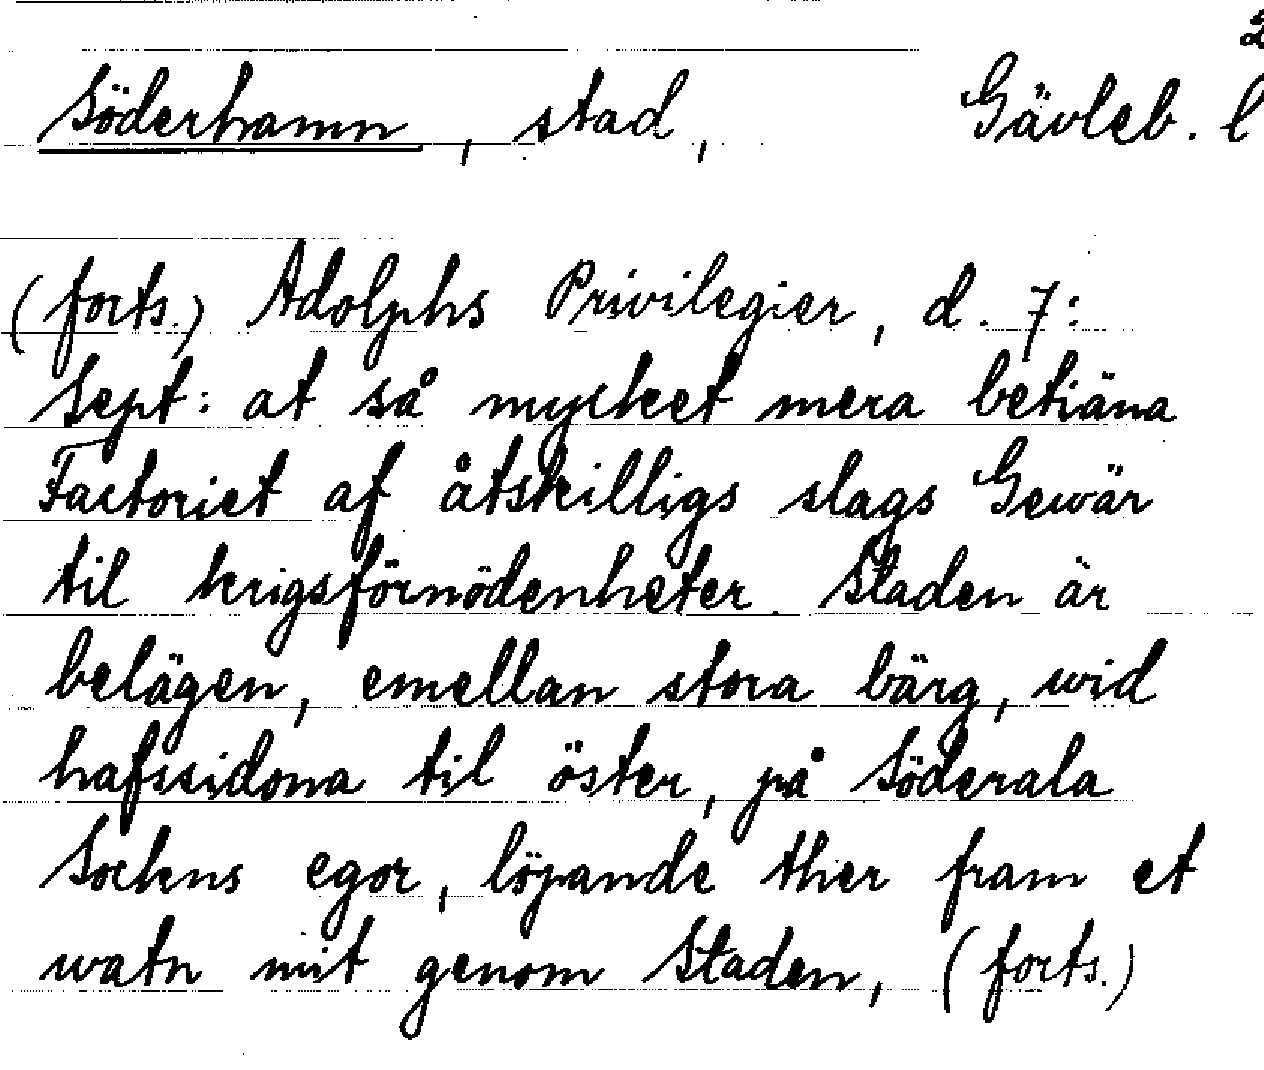 2
Söderhamn, stad, Gävleb. l
(forts.) Adolphs Privilegier, d. 7:
Sept: at så mycket mera betiäna
Factoriet af åtskilligs slags Gewär
til krigsförnödenheter. Staden är
belägen, emellan stora bärg, wid
hafssidona til öster, på Söderala
Sockns egor, löpande ther fram et
watn mit genom Staden, (forts.)